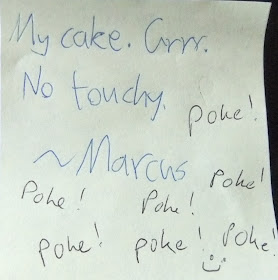 My cake. Grrr.
No touchy.
poke!
~Marcus
Poke!
Poke!
Poke!
poke!
poke!
Poke!